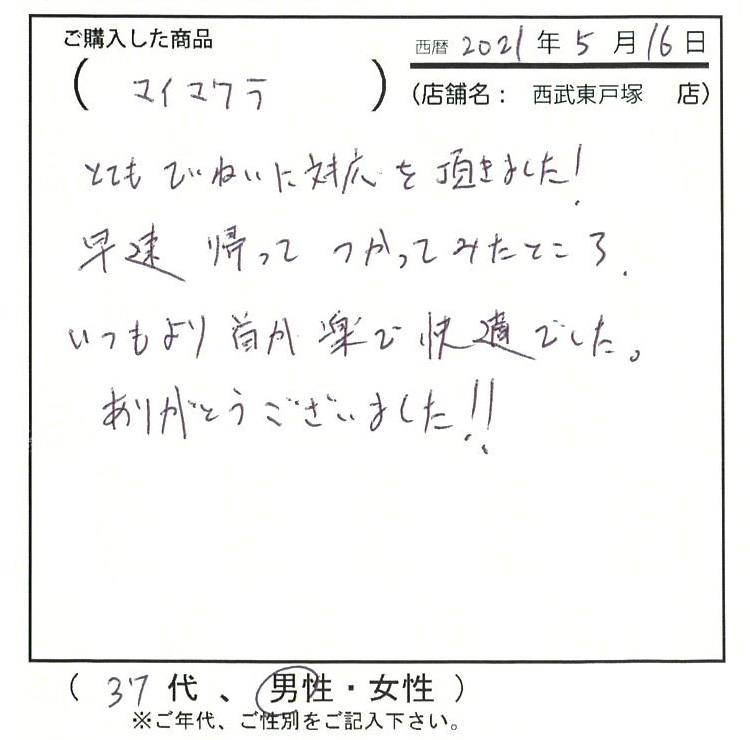 ご購入した商品
西暦 2021年5月16日
( マイマクラ )
(店舗名： 西武東戸塚 店)
とても ていねいに対応を頂きました!
早速 帰って つかってみたところ、
いつもより首が楽で快適でした。
ありがとうございました!!
( 37代 、 男性・女性 )
※ご年代、ご性別をご記入下さい。